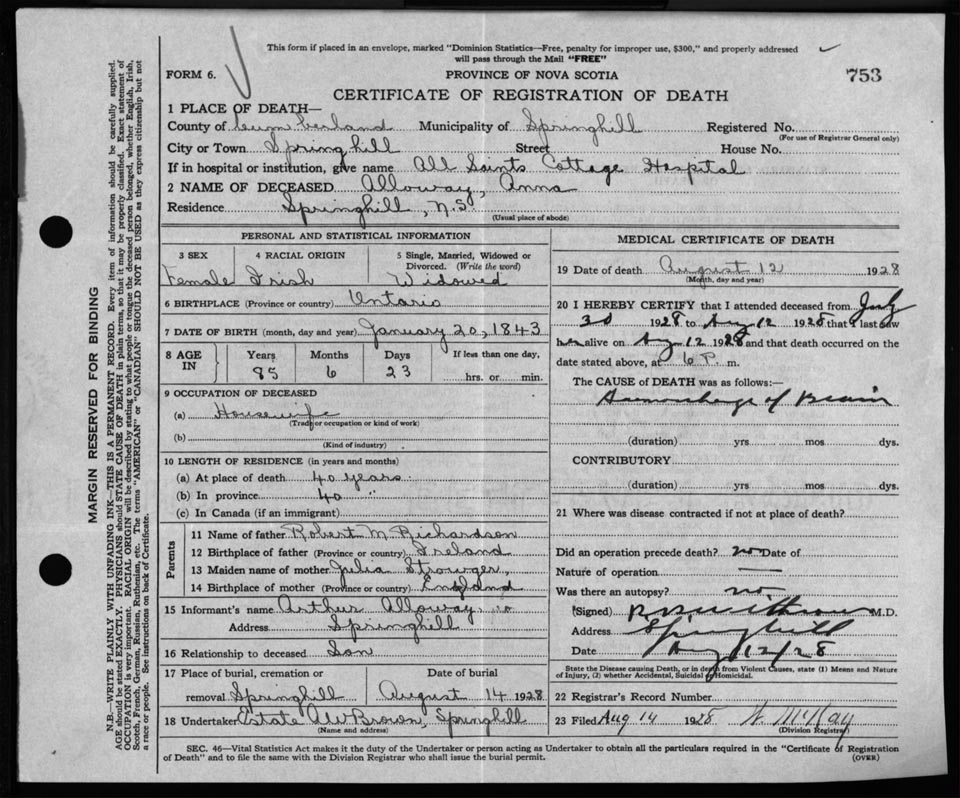 This form if placed in an envelope, marked "Dominion Statistics—Free, penalty for improper use, $300," and properly addressed
will pass through the Mail "FREE"
FORM 6.
PROVINCE OF NOVA SCOTIA
753
CERTIFICATE OF REGISTRATION OF DEATH
1 PLACE OF DEATH—
County of Cumberland Municipality of Springhill Registered No.
(For use of Registrar General only)
City or Town Springhill Street House No.
If in hospital or institution, give name All Saints Cottage Hospital
2 NAME OF DECEASED Alloway, Anna
Residence Springhill, N.S.
(Usual place of abode)
PERSONAL AND STATISTICAL INFORMATION
3 SEX 4 RACIAL ORIGIN 5 Single, Married, Widowed or
Divorced. (Write the word)
Female Irish Widowed
6 BIRTHPLACE (Province or country) Ontario
7 DATE OF BIRTH (month, day and year) January 20, 1843
8 AGE IN Years Months Days If less than one day,
85 6 23 hrs. or min.
9 OCCUPATION OF DECEASED
(a) Housewife
(Trade or occupation or kind of work)
(b)
(Kind of industry)
10 LENGTH OF RESIDENCE (in years and months)
(a) At place of death 40 years
(b) In province 40 "
(c) In Canada (if an immigrant)
Parents
11 Name of father Robert M Richardson
12 Birthplace of father (Province or country) Ireland
13 Maiden name of mother Julia Strowger
14 Birthplace of mother (Province or country) England
15 Informant's name Arthur Alloway
Address Springhill
16 Relationship to deceased Son
17 Place of burial, cremation or Date of burial
removal Springhill August 14 1928
18 Undertaker Estate A W Brown, Springhill
(Name and address)
MEDICAL CERTIFICATE OF DEATH
19 Date of death August 12 1928
(Month, day and year)
20 I HEREBY CERTIFY that I attended deceased from July
30 1928 to Aug 12 1928 that I last saw
her alive on Aug 12 1928 and that death occurred on the
date stated above, at 6 P. m.
The CAUSE of DEATH was as follows:—
Haemorrhage of Brain
(duration) yrs mos dys.
CONTRIBUTORY
(duration) yrs. mos. dys.
21 Where was disease contracted if not at place of death?
Did an operation precede death? no Date of
Nature of operation —
Was there an autopsy? no
(Signed) M.D.
Address Springhill
Date Aug 12/28
State the Disease causing Death, or in death from Violent Causes, state (1) Means and Nature
of Injury, (2) whether Accidental, Suicidal or Homicidal.
22 Registrar's Record Number
23 Filed Aug 14 1928 W McKay
(Division Registrar)
SEC. 46—Vital Statistics Act makes it the duty of the Undertaker or person acting as Undertaker to obtain all the particulars required in the "Certificate of Registration
of Death" and to file the same with the Division Registrar who shall issue the burial permit.
(OVER)
MARGIN RESERVED FOR BINDING
N.B.—WRITE PLAINLY WITH UNFADING INK—THIS IS A PERMANENT RECORD. Every item of information should be carefully supplied.
AGE should be stated EXACTLY. PHYSICIANS should STATE CAUSE OF DEATH in plain terms, so that it may be properly classified. Exact statement of
OCCUPATION is very important. RACIAL ORIGIN will be described by stating to what people or tongue the deceased person belonged, whether English, Irish,
Scotch, French, German, Russian, Ruthenian, etc. The terms "AMERICAN" or "CANADIAN" SHOULD NOT BE USED as they express citizenship but not
a race or people. See instructions on back of Certificate.